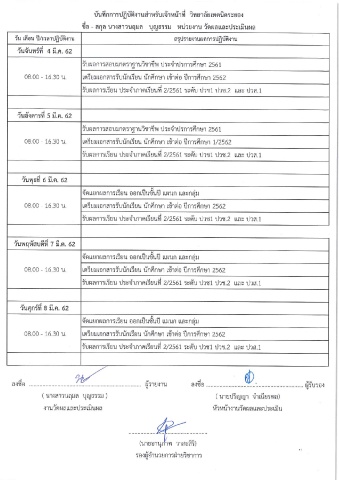 บันทึกการปฏิบัติงานสำหรับเจ้าหน้าที่ วิทยาลัยเทคนิคระยอง
ชื่อ - สกุล นางสาวนฤมล บุญธรรม หน่วยงาน วัดผลและประเมินผล
วัน เดือน ปี/เวลาปฏิบัติงาน สรุปรายงานผลการปฏิบัติงาน
วันจันทร์ที่ 4 มี.ค. 62
รับผลการสอบมาตรฐานวิชาชีพ ประจำปีการศึกษา 2561
08.00 - 16.30 น. เตรียมเอกสารรับนักเรียน นักศึกษา เข้าต่อ ปีการศึกษา 2562
รับผลการเรียน ประจำภาคเรียนที่ 2/2561 ระดับ ปวช1 ปวช.2 และ ปวส.1
วันอังคารที่ 5 มี.ค. 62
รับผลการสอบมาตรฐานวิชาชีพ ประจำปีการศึกษา 2561
08.00 - 16.30 น. เตรียมเอกสารรับนักเรียน นักศึกษา เข้าต่อ ปีการศึกษา 1/2562
รับผลการเรียน ประจำภาคเรียนที่ 2/2561 ระดับ ปวช1 ปวช.2 และ ปวส.1
วันพุธที่ 6 มี.ค. 62
จัดแยกผลการเรียน ออกเป็นชั้นปี แผนก และกลุ่ม
08.00 - 16.30 น. เตรียมเอกสารรับนักเรียน นักศึกษา เข้าต่อ ปีการศึกษา 2562
รับผลการเรียน ประจำภาคเรียนที่ 2/2561 ระดับ ปวช1 ปวช.2 และ ปวส.1
วันพฤหัสบดีที่ 7 มี.ค. 62
จัดแยกผลการเรียน ออกเป็นชั้นปี แผนก และกลุ่ม
08.00 - 16.30 น. เตรียมเอกสารรับนักเรียน นักศึกษา เข้าต่อ ปีการศึกษา 2562
รับผลการเรียน ประจำภาคเรียนที่ 2/2561 ระดับ ปวช1 ปวช.2 และ ปวส.1
วันศุกร์ที่ 8 มี.ค. 62
จัดแยกผลการเรียน ออกเป็นชั้นปี แผนก และกลุ่ม
08.00 - 16.30 น. เตรียมเอกสารรับนักเรียน นักศึกษา เข้าต่อ ปีการศึกษา 2562
รับผลการเรียน ประจำภาคเรียนที่ 2/2561 ระดับ ปวช1 ปวช.2 และ ปวส.1
ลงชื่อ ผู้รายงาน ลงชื่อ ผู้รับรอง
( นางสาวนฤมล บุญธรรม ) ( นายปริญญา )
งานวัดผลและประเมินผล หัวหน้างานวัดผลและประเมิน
รองผู้อำนวยการฝ่ายวิชาการ